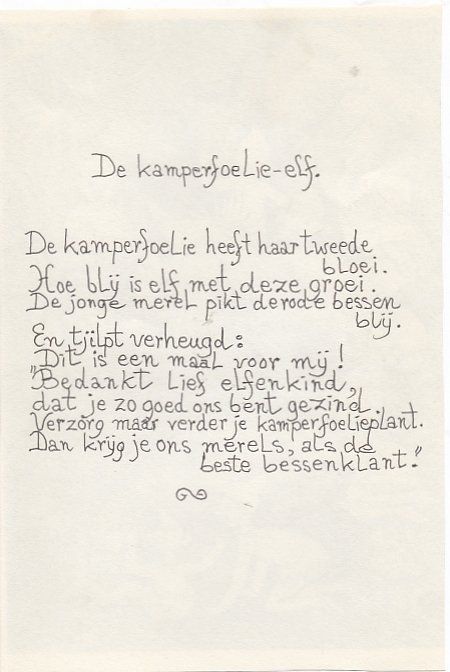 De kamperfoelie-elf.
De kamperfoelie heeft haar tweede
bloei.
Hoe blij is elf met deze groei.
De jonge merel pikt de rode bessen
blij.
En tjilpt verheugd:
„Dit is een maal voor mij!
„Bedankt lief elfenkind,
dat je zo goed ons bent gezind.
Verzorg maar verder je kamperfoelieplant.
Dan krijg je ons merels, als de
beste bessenklant."